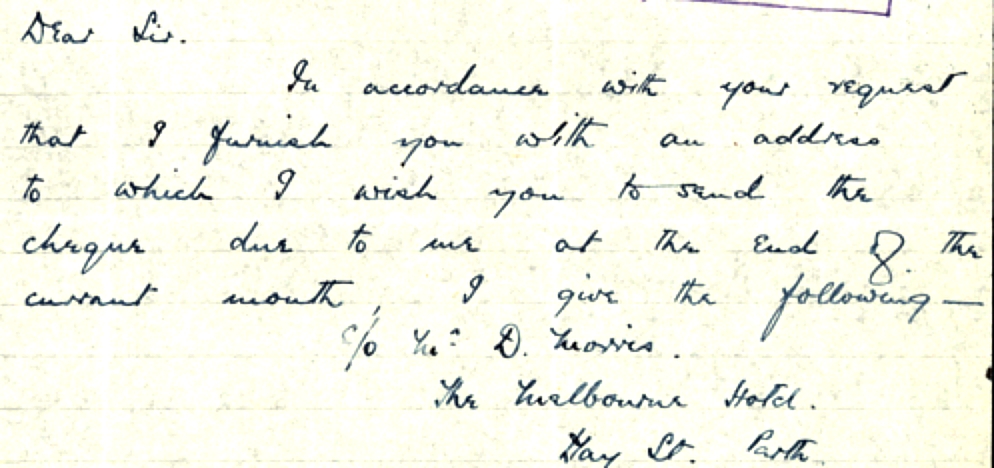 Dear Sir.
In accordance with your request
that I furnish you with an address
to which I wish you to send the
cheque due to me at the end of the
current month, I give the following —
c/o Mr. D. Morris.
The Melbourne Hotel.
Hay St. Perth.